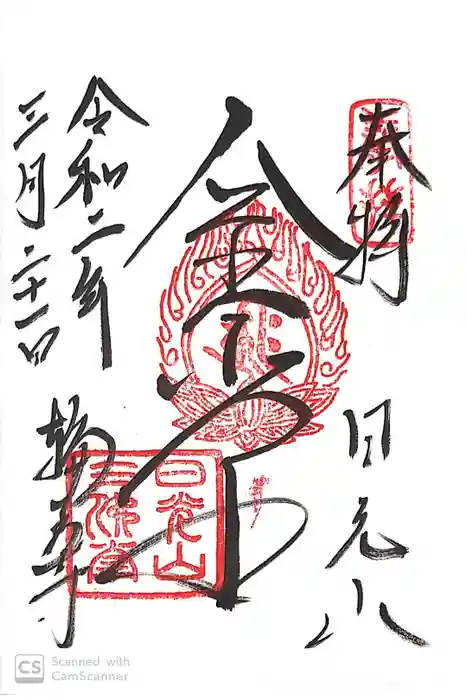 奉拝
日光山
金堂
令和二年
三月二十一日
輪王寺
日光山
三佛堂
CS Scanned with
CamScanner